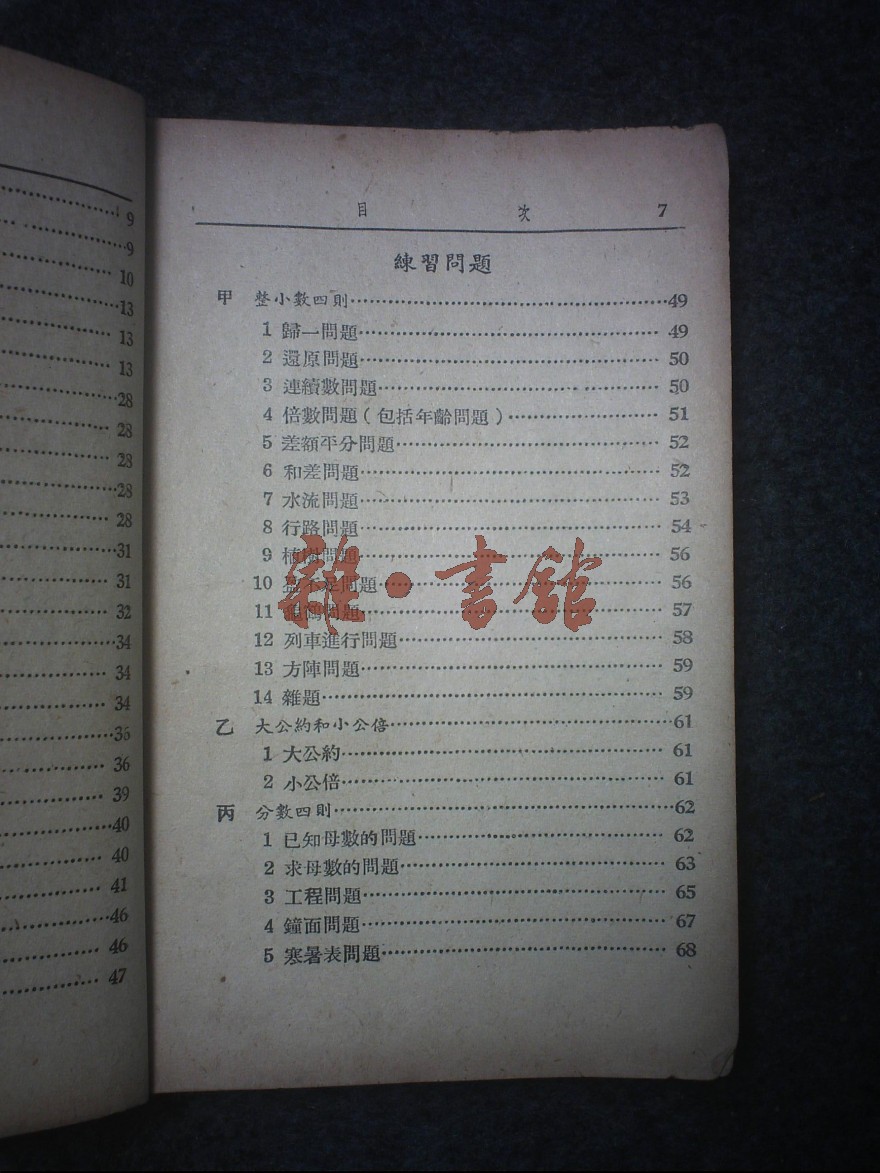 9
9
10
13
13
13
28
28
28
28
28
31
31
32
34
34
34
36
39
40
40
41
46
46
47
目 次 7
練習問題
甲 整小數四則……49
1 歸一問題……49
2 還原問題……50
3 連續數問題……50
4 倍數問題(包括年齡問題)……51
5 差額平分問題……52
6 和差問題……52
7 水流問題……53
8 行路問題……54
9 植樹問題……56
10 盈不足問題……56
11 鶴問題……57
12 列車進行問題……58
13 方陣問題……59
14 雜題……59
乙 大公約和小公倍……61
1 大公約……61
2 小公倍……61
丙 分數四則……62
1 已知母數的問題……62
2 求母數的問題……63
3 工程問題……65
4 鐘面問題……67
5 寒暑表問題……68
雜·書館